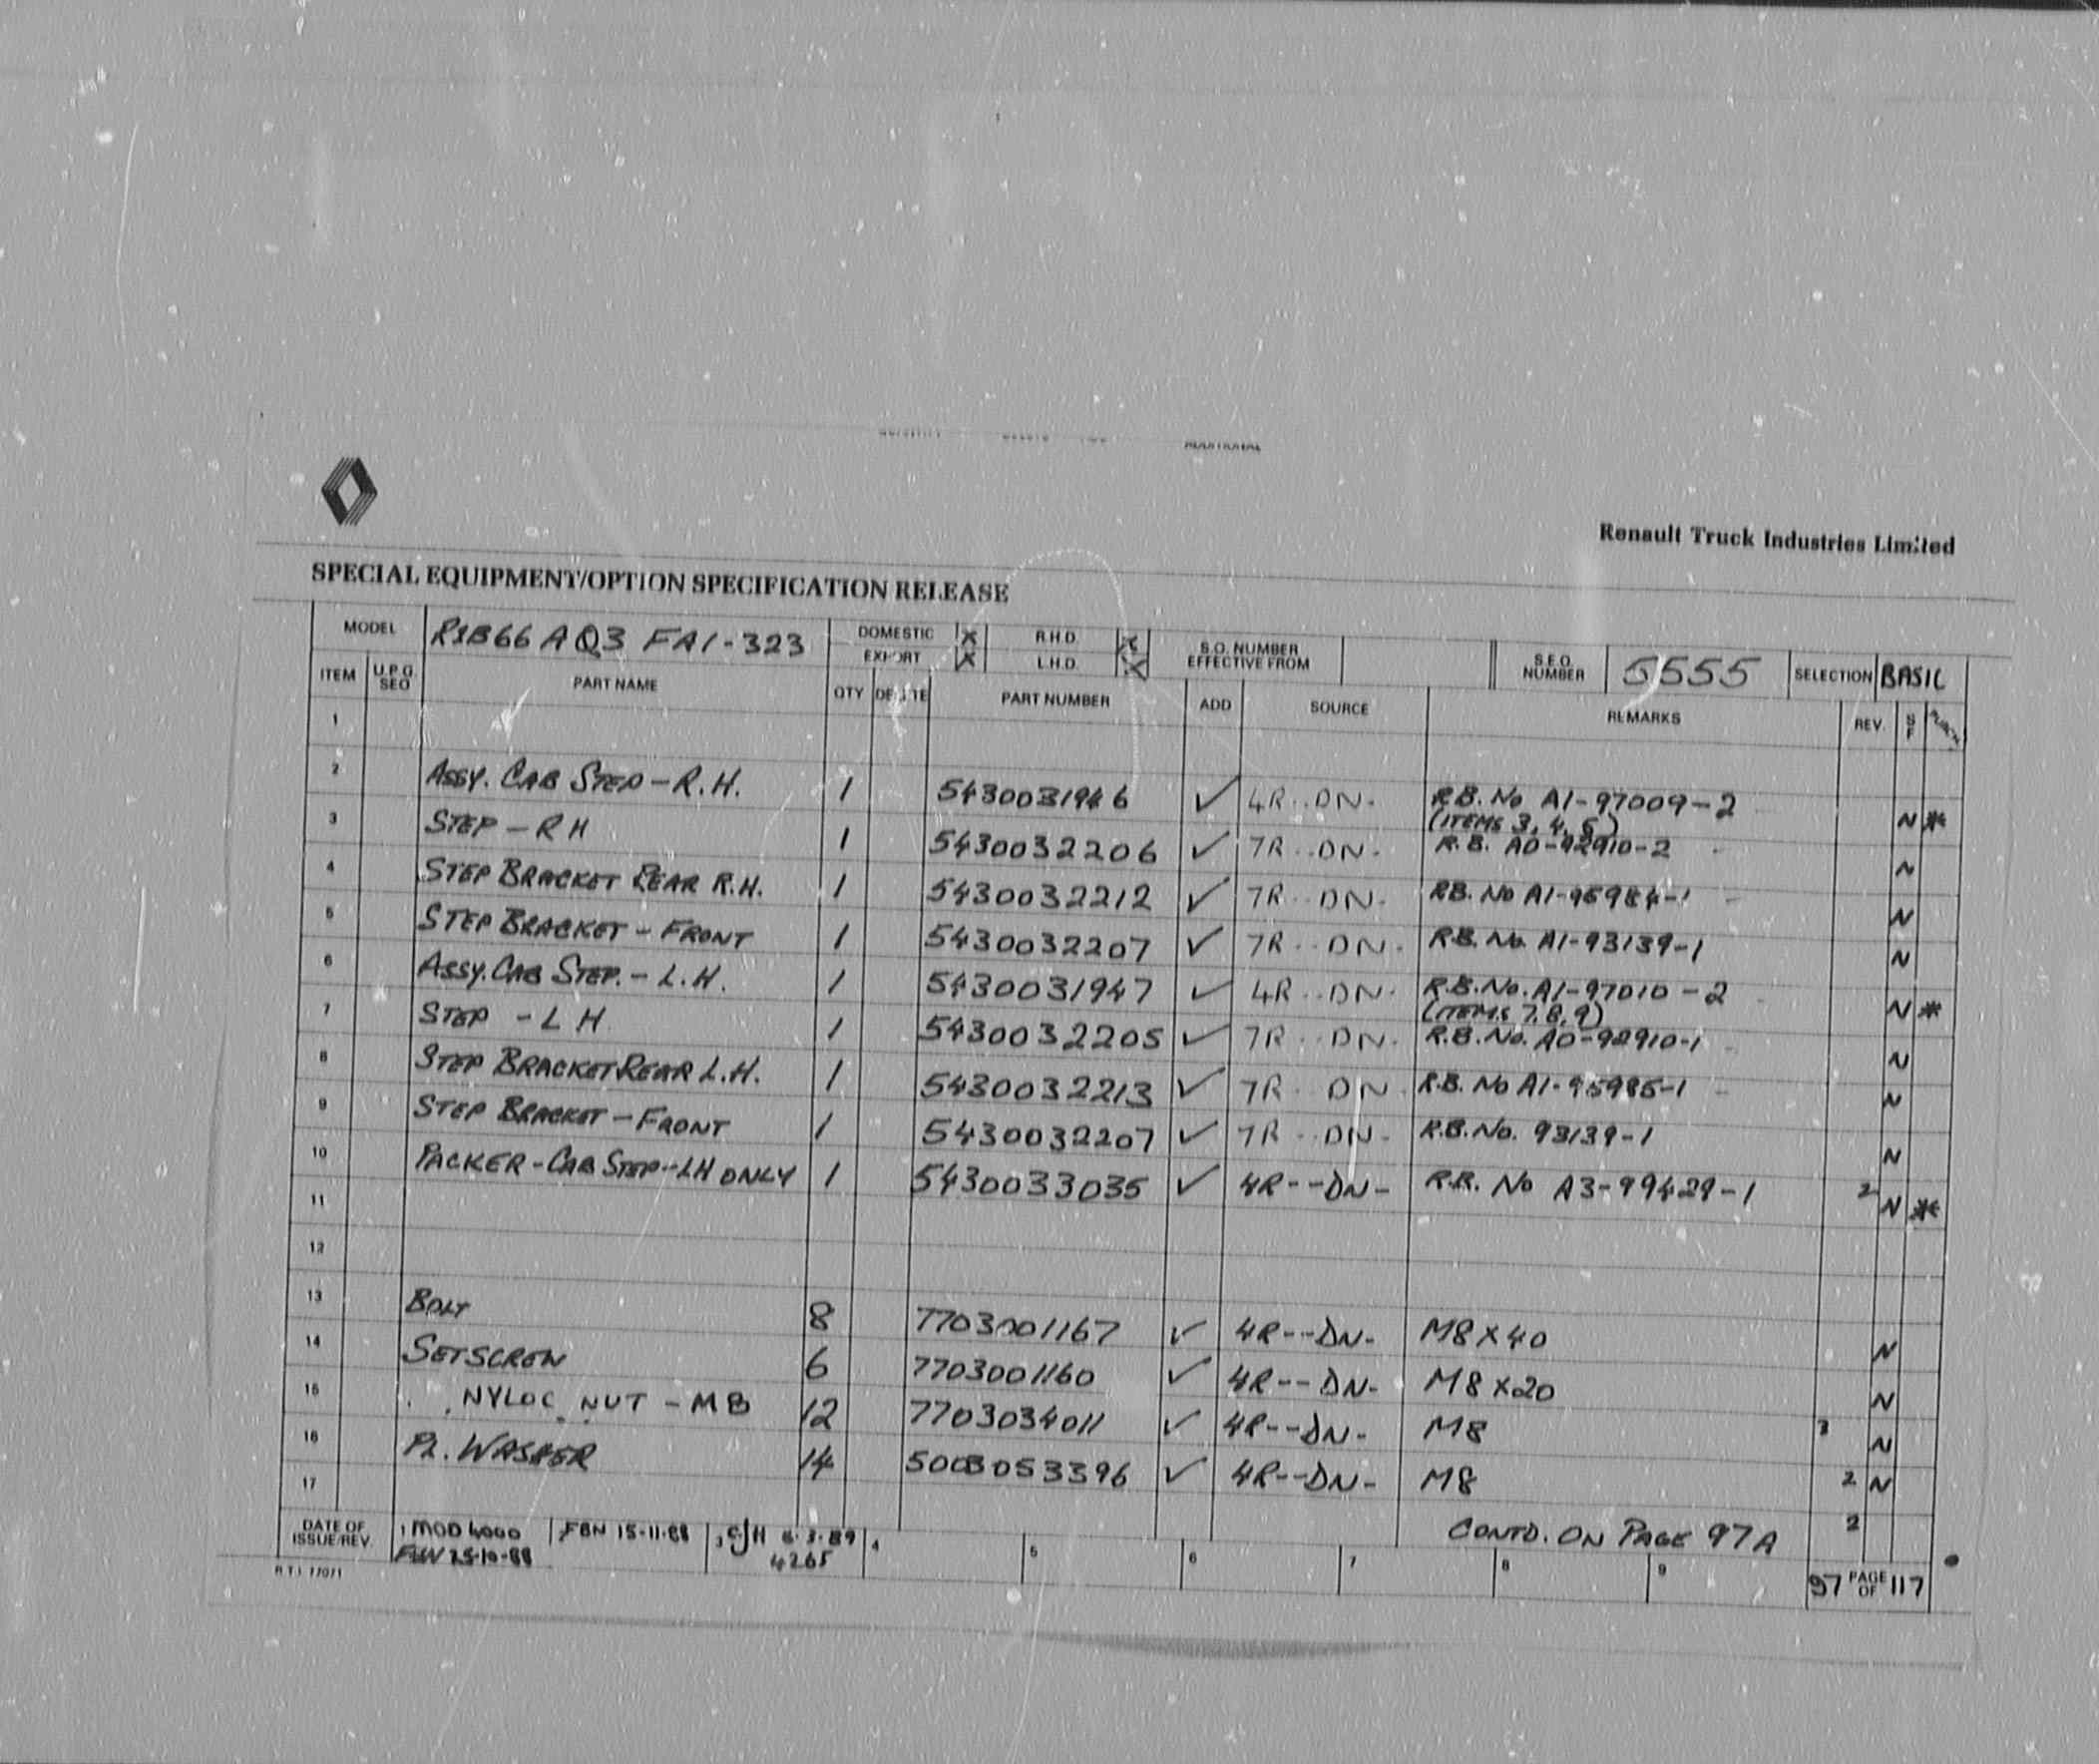 Renault Truck Industries Limited
SPECIAL EQUIPMENT/OPTION SPECIFICATION RELEASE
MODEL R1B66 AQ3 FA1-323 DOMESTIC X R.H.D. X S.O. NUMBER EFFECTIVE FROM S.E.O. NUMBER 5555 SELECTION BASIC
EXPORT X L.H.D. X
ITEM U.P.G. SEQ PART NAME QTY DELETE PART NUMBER ADD SOURCE REMARKS REV. S F
1
2 ASSY. CAB STEP - R.H. 1 5430031946 ✓ 4R..DN- R.B. No A1-97009-2 N *
(ITEMS 3, 4, 5)
3 STEP - RH 1 5430032206 ✓ 7R..DN- R.B. A0-92910-2 N
4 STEP BRACKET REAR R.H. 1 5430032212 ✓ 7R..DN- RB. No A1-95984-1 N
5 STEP BRACKET - FRONT 1 5430032207 ✓ 7R..DN- R.B. No. A1-93139-1 N
6 ASSY. CAB STEP. - L.H. 1 5430031947 ✓ 4R..DN- R.B. No. A1-97010-2 N *
(ITEMS 7, 8, 9)
7 STEP - LH 1 5430032205 ✓ 7R..DN- R.B. No. A0-92910-1 N
8 STEP BRACKET REAR L.H. 1 5430032213 ✓ 7R..DN- R.B. No A1-95985-1 N
9 STEP BRACKET - FRONT 1 5430032207 ✓ 7R..DN- R.B. No. 93139-1 N
10 PACKER - CAB STEP - LH ONLY 1 5430033035 ✓ 4R--DN- R.R. No A3-99429-1 2 N *
11
12
13 BOLT 8 7703001167 ✓ 4R--DN- M8 X 40 N
14 SETSCREW 6 7703001160 ✓ 4R--DN- M8 X 20 N
15 NYLOC NUT - M8 12 7703034011 ✓ 4R--DN- M8 3 N
16 PL. WASHER 14 5003053396 ✓ 4R--DN- M8 2 N
17 CONTD. ON PAGE 97A 2
DATE OF ISSUE/REV 1 MOD 4000 15-11-88 3 CJH 6.3.89 4 5 6 7 8 9 97 PAGE OF 117
25-10-88 4265
R.T.I. 17071